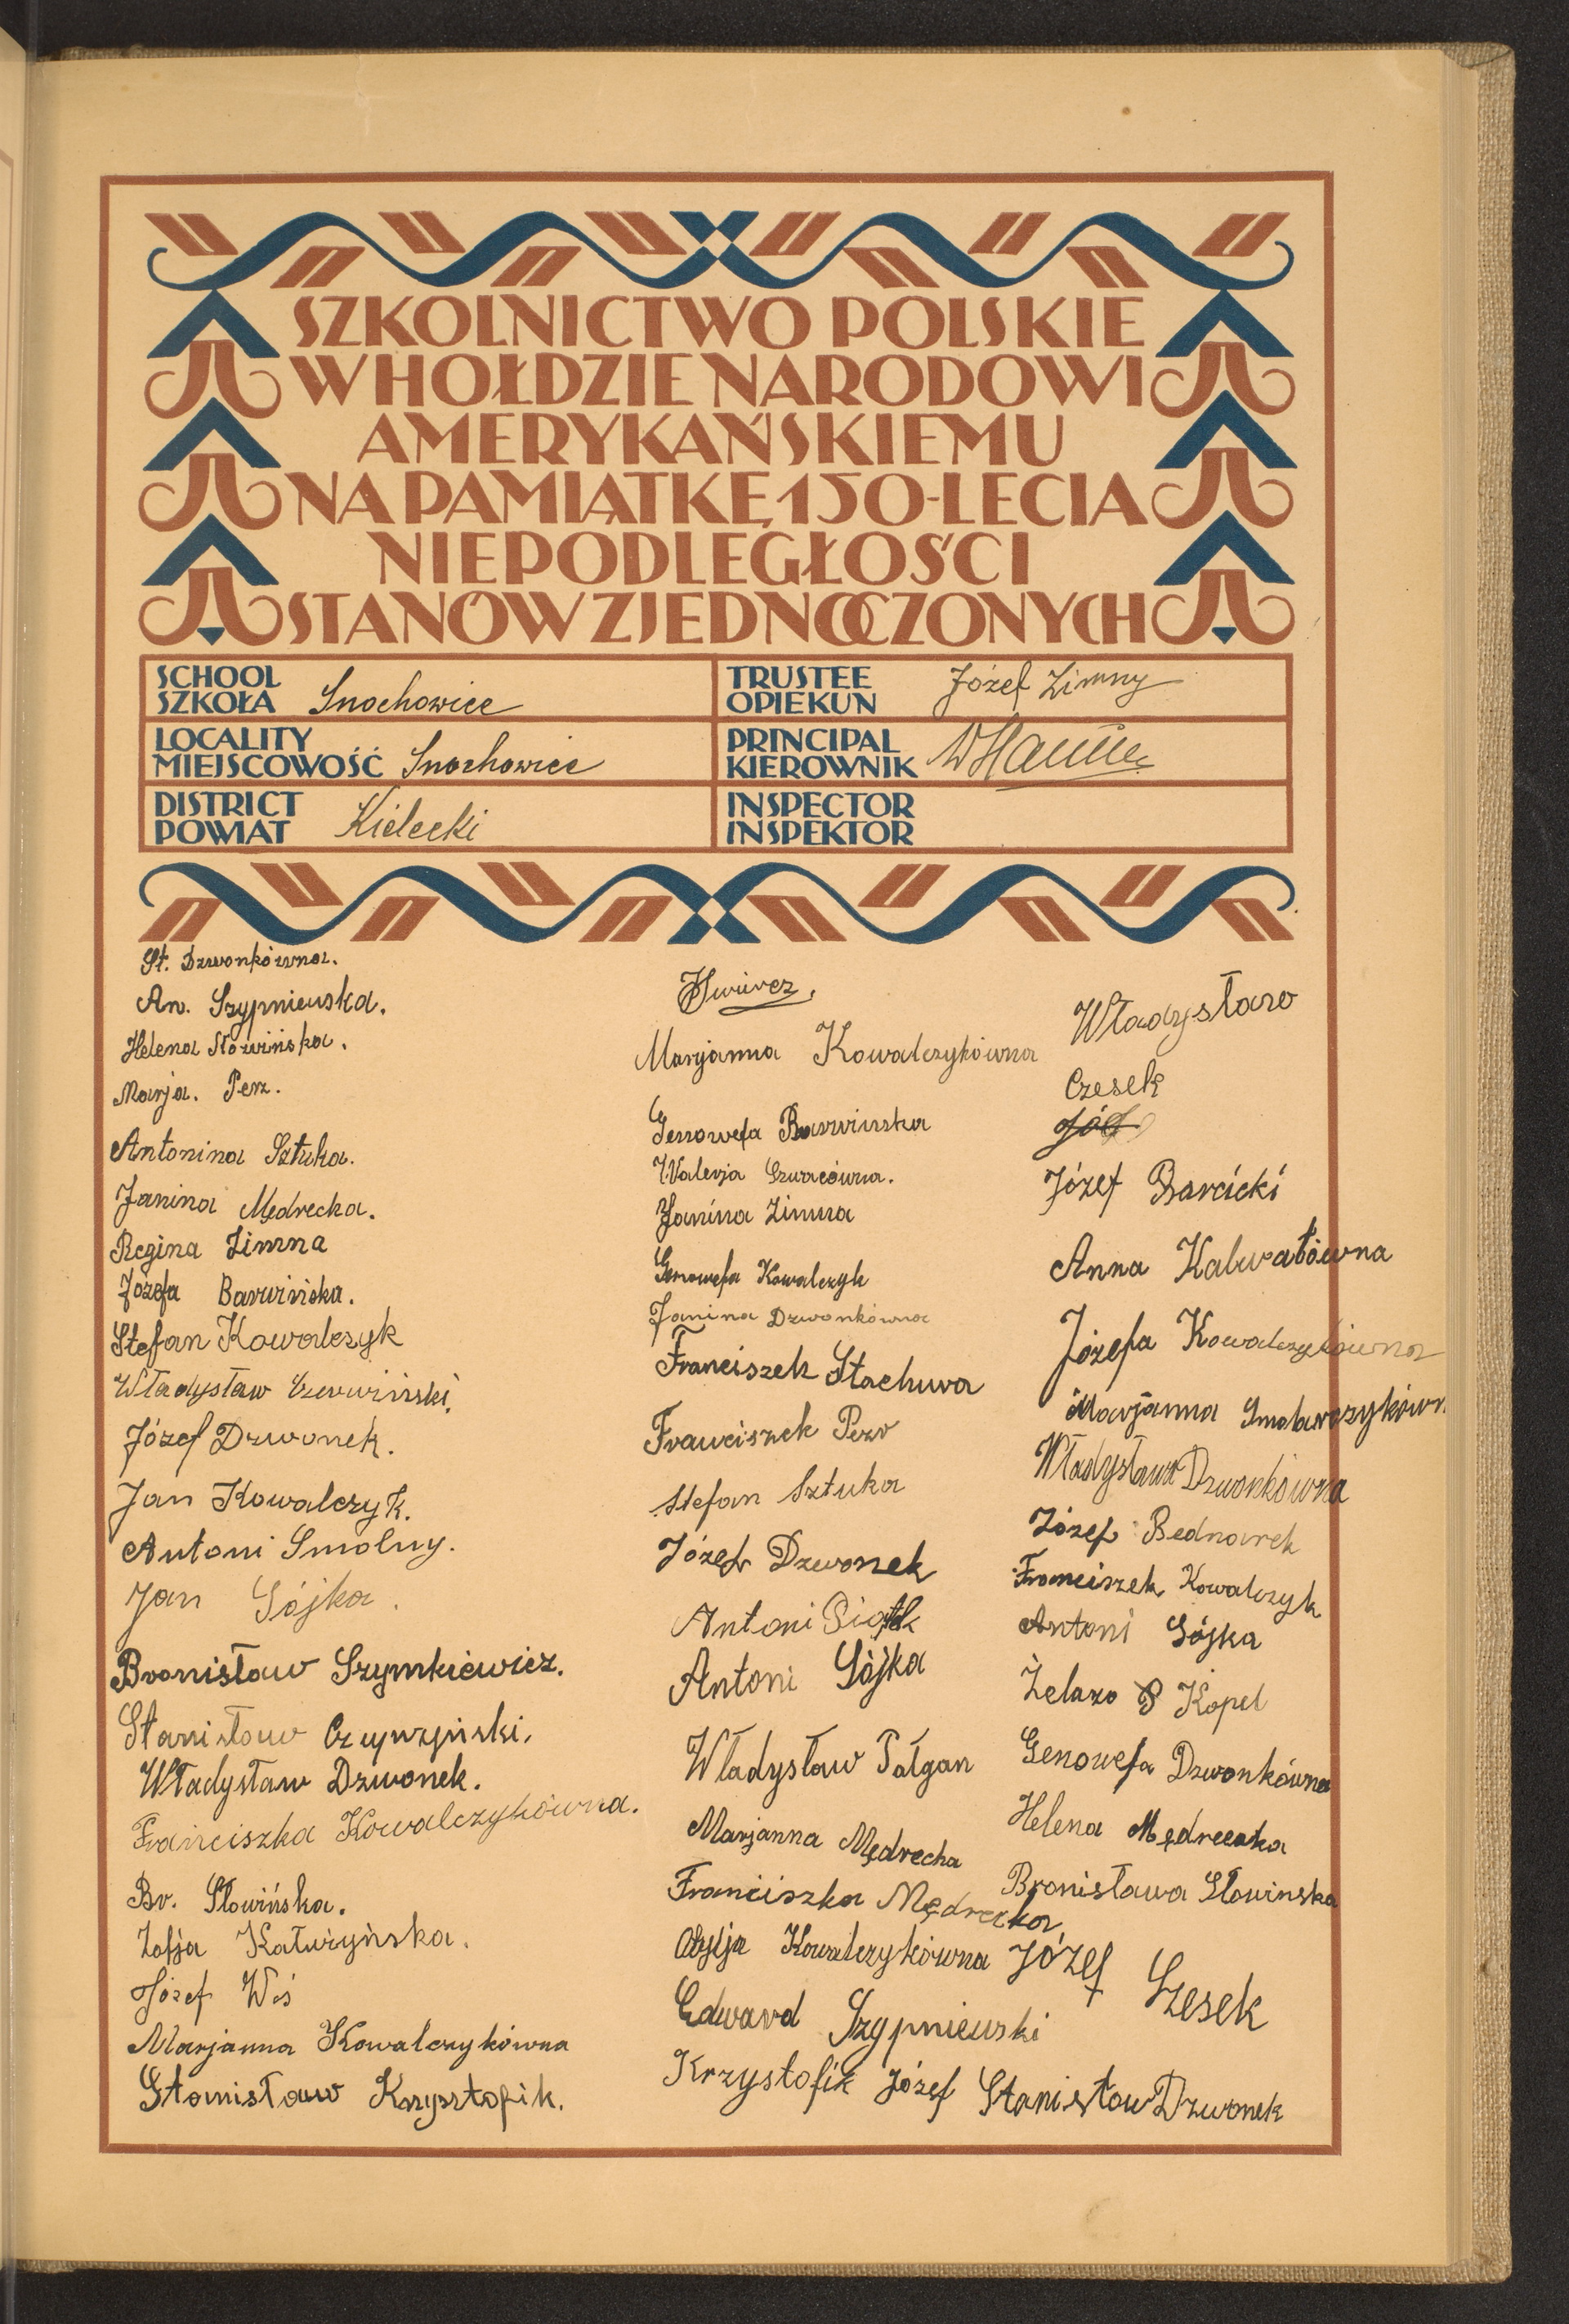 SZKOLNICTWO POLSKIE
W HOŁDZIE NARODOWI
AMERYKAŃSKIEMU
NA PAMIĄTKĘ 150-LECIA
NIEPODLEGŁOŚCI
STANÓW ZJEDNOCZONYCH
SCHOOL
SZKOŁA Snochowice
TRUSTEE
OPIEKUN Józef Zimny
LOCALITY
MIEJSCOWOŚĆ Snochowice
PRINCIPAL
KIEROWNIK
DISTRICT
POWIAT Kielecki
INSPECTOR
INSPEKTOR
St. Dzwonkówna.
An. Szypniewska.
Helena Słowińska.
Marja. Perz.
Antonina Sztuka.
Janina Mędrecka.
Regina Zimna
Józefa Barwińska.
Stefan Kowalczyk
Władysław Czerwiński.
Józef Dzwonek.
Jan Kowalczyk.
Antoni Smolny.
Jan Sójka.
Bronisław Szymkiewicz.
Stanisław
Władysław Dzwonek.
Franciszka Kowalczykówna.
Br. Słowińska.
Zofja Kałwżyńska.
Józef Wiś
Marjanna Kowalczykówna
Stanisław Krzysztofik.
Marjanna Kowalczykówna
Genowefa Barwinska
Walerja
Janina Zimna
Genowefa Kowalczyk
Janina Dzwonkówna
Franciszek Stachura
Franciszek Perz
Stefan Sztuka
Józef Dzwonek
Antoni Piątek
Antoni Sójka
Władysław Pałgan
Marjanna Mędrecka
Franciszka Mędrecka
Kowalczykówna
Edward Szypniewski
Krzystofik Józef
Władysław
Czesek
Józef Barcicki
Anna Kalwatówna
Józefa Kowalczykówna
Marjanna
Władysława Dzwonkówna
Józef Bednarek
Franciszek Kowalczyk
Antoni Sójka
Żelazo Kopel
Genowefa Dzwonkówna
Helena Mędrecka
Bronisława Słowinska
Józef Czesek
Stanisław Dzwonek